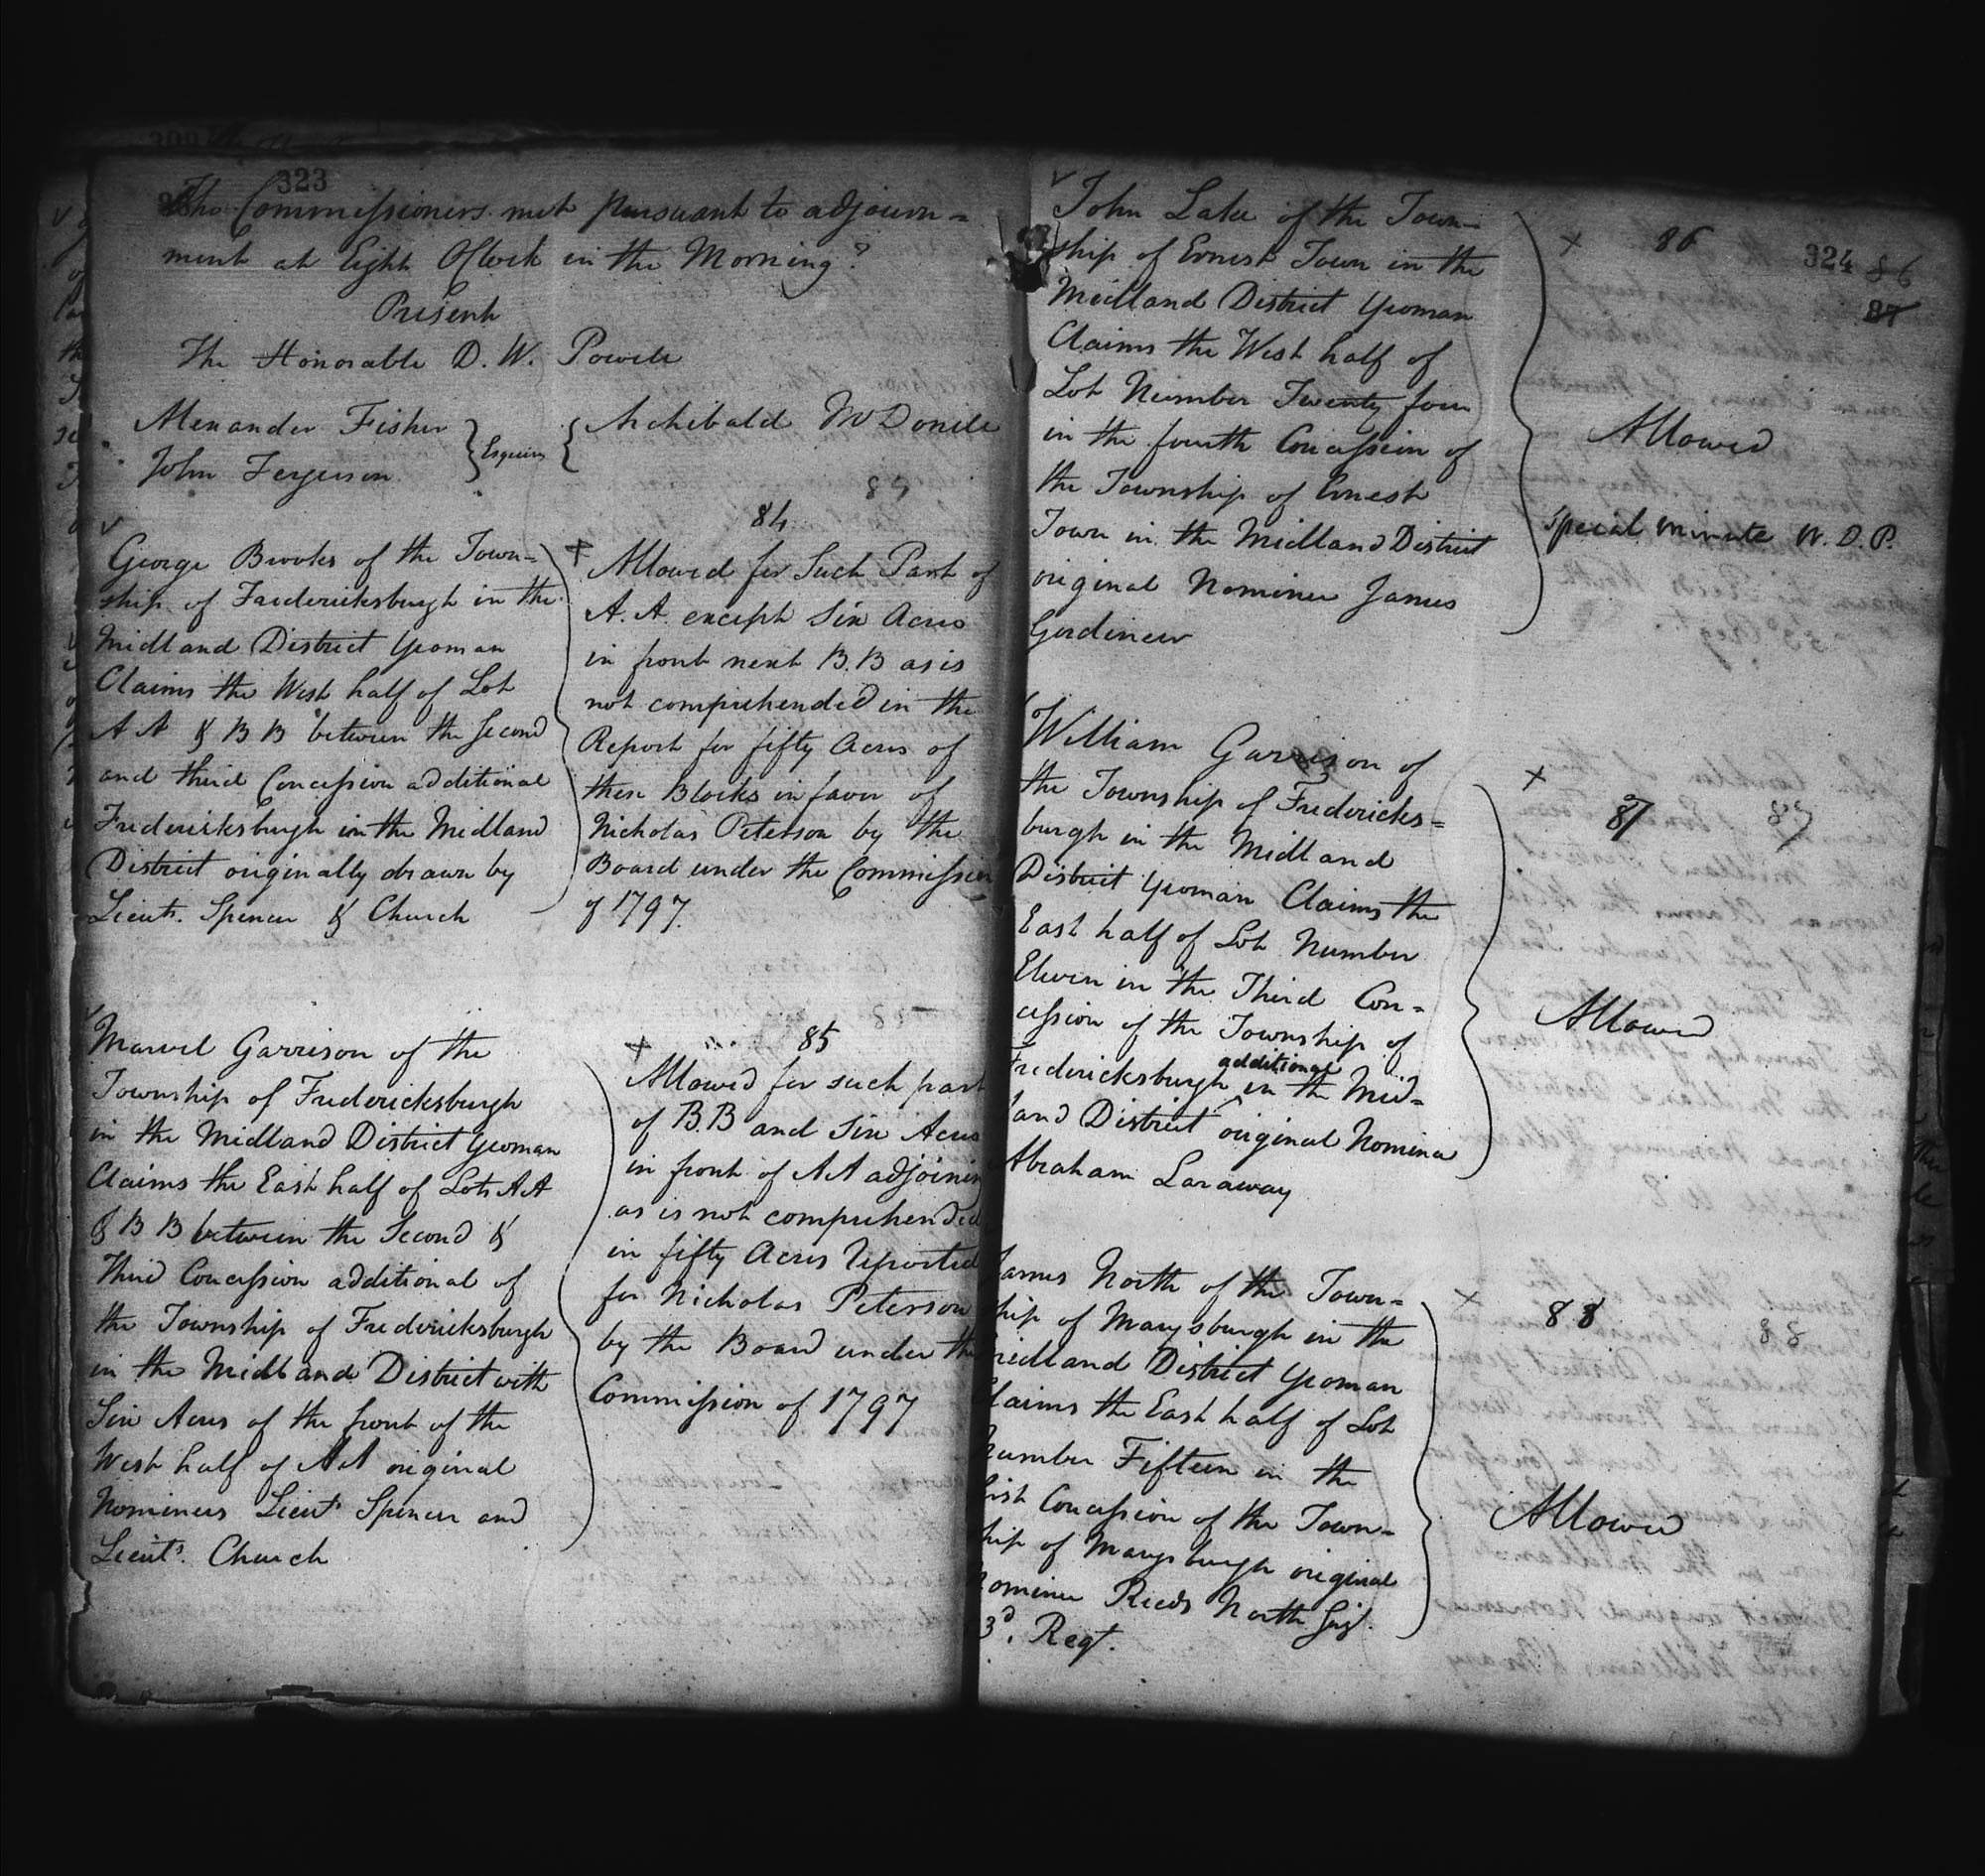 323
The Commissioners met pursuant to adjourn=
ment at Eight OClock in the Morning?
Present
The Honorable D. W. Powell
Alexander Fisher
John Ferguson
Esquires
Archibald McDonell
84
George Brooks of the Town-
ship of Fredericksburgh in the
Midland District Yeoman
Claims the West half of Lot
A A & B B between the Second
and third Concession additional
Fredericksburgh in the Midland
District originally drawn by
Lieuts. Spencer & Church
+ Allowed for Such Part of
A. A. except Six Acres
in front next B.B as is
not comprehended in the
Report for fifty Acres of
these Blocks in favor of
Nicholas Peterson by the
Board under the Commission
of 1797.
Marvel Garrison of the
Township of Fredericksburgh
in the Midland District Yeoman
Claims the East half of Lots A A
& B B between the Second &
Third Concession additional of
the Township of Fredericksburgh
in the Midland District with
Six Acres of the front of the
West half of AA original
Nominees Lieut. Spencer and
Lieuts. Church
+ 85
Allowed for such part
of B.B and Six Acres
in front of AA adjoining
as is not comprehended
in fifty Acres reported
for Nicholas Peterson
by the Board under the
Commission of 1797
324 86
87
John Lake of the Town-
ship of Ernest Town in the
Midland District Yeoman
Claims the West half of
Lot Number Twenty four
in the fourth Concession of
the Township of Ernest
Town in the Midland District
original Nominee James
Gerdineer
+ 86
Allowed
Special minute W. D. P.
William Garrison of
the Township of Fredericks=
burgh in the Midland
District Yeoman Claims the
East half of Lot Number
Eleven in the Third Con-
cession of the Township of
additional
Fredericksburgh in the Mid-
land District original Nominee
Abraham Laraway
+ 87 87
Allowed
James North of the Town-
ship of Marysburgh in the
Midland District Yeoman
Claims the East half of Lot
Number Fifteen in the
first Concession of the Town-
ship of Marysburgh original
Nominee Reeds North Sej.
3d. Regt.
+ 88 88
Allowed